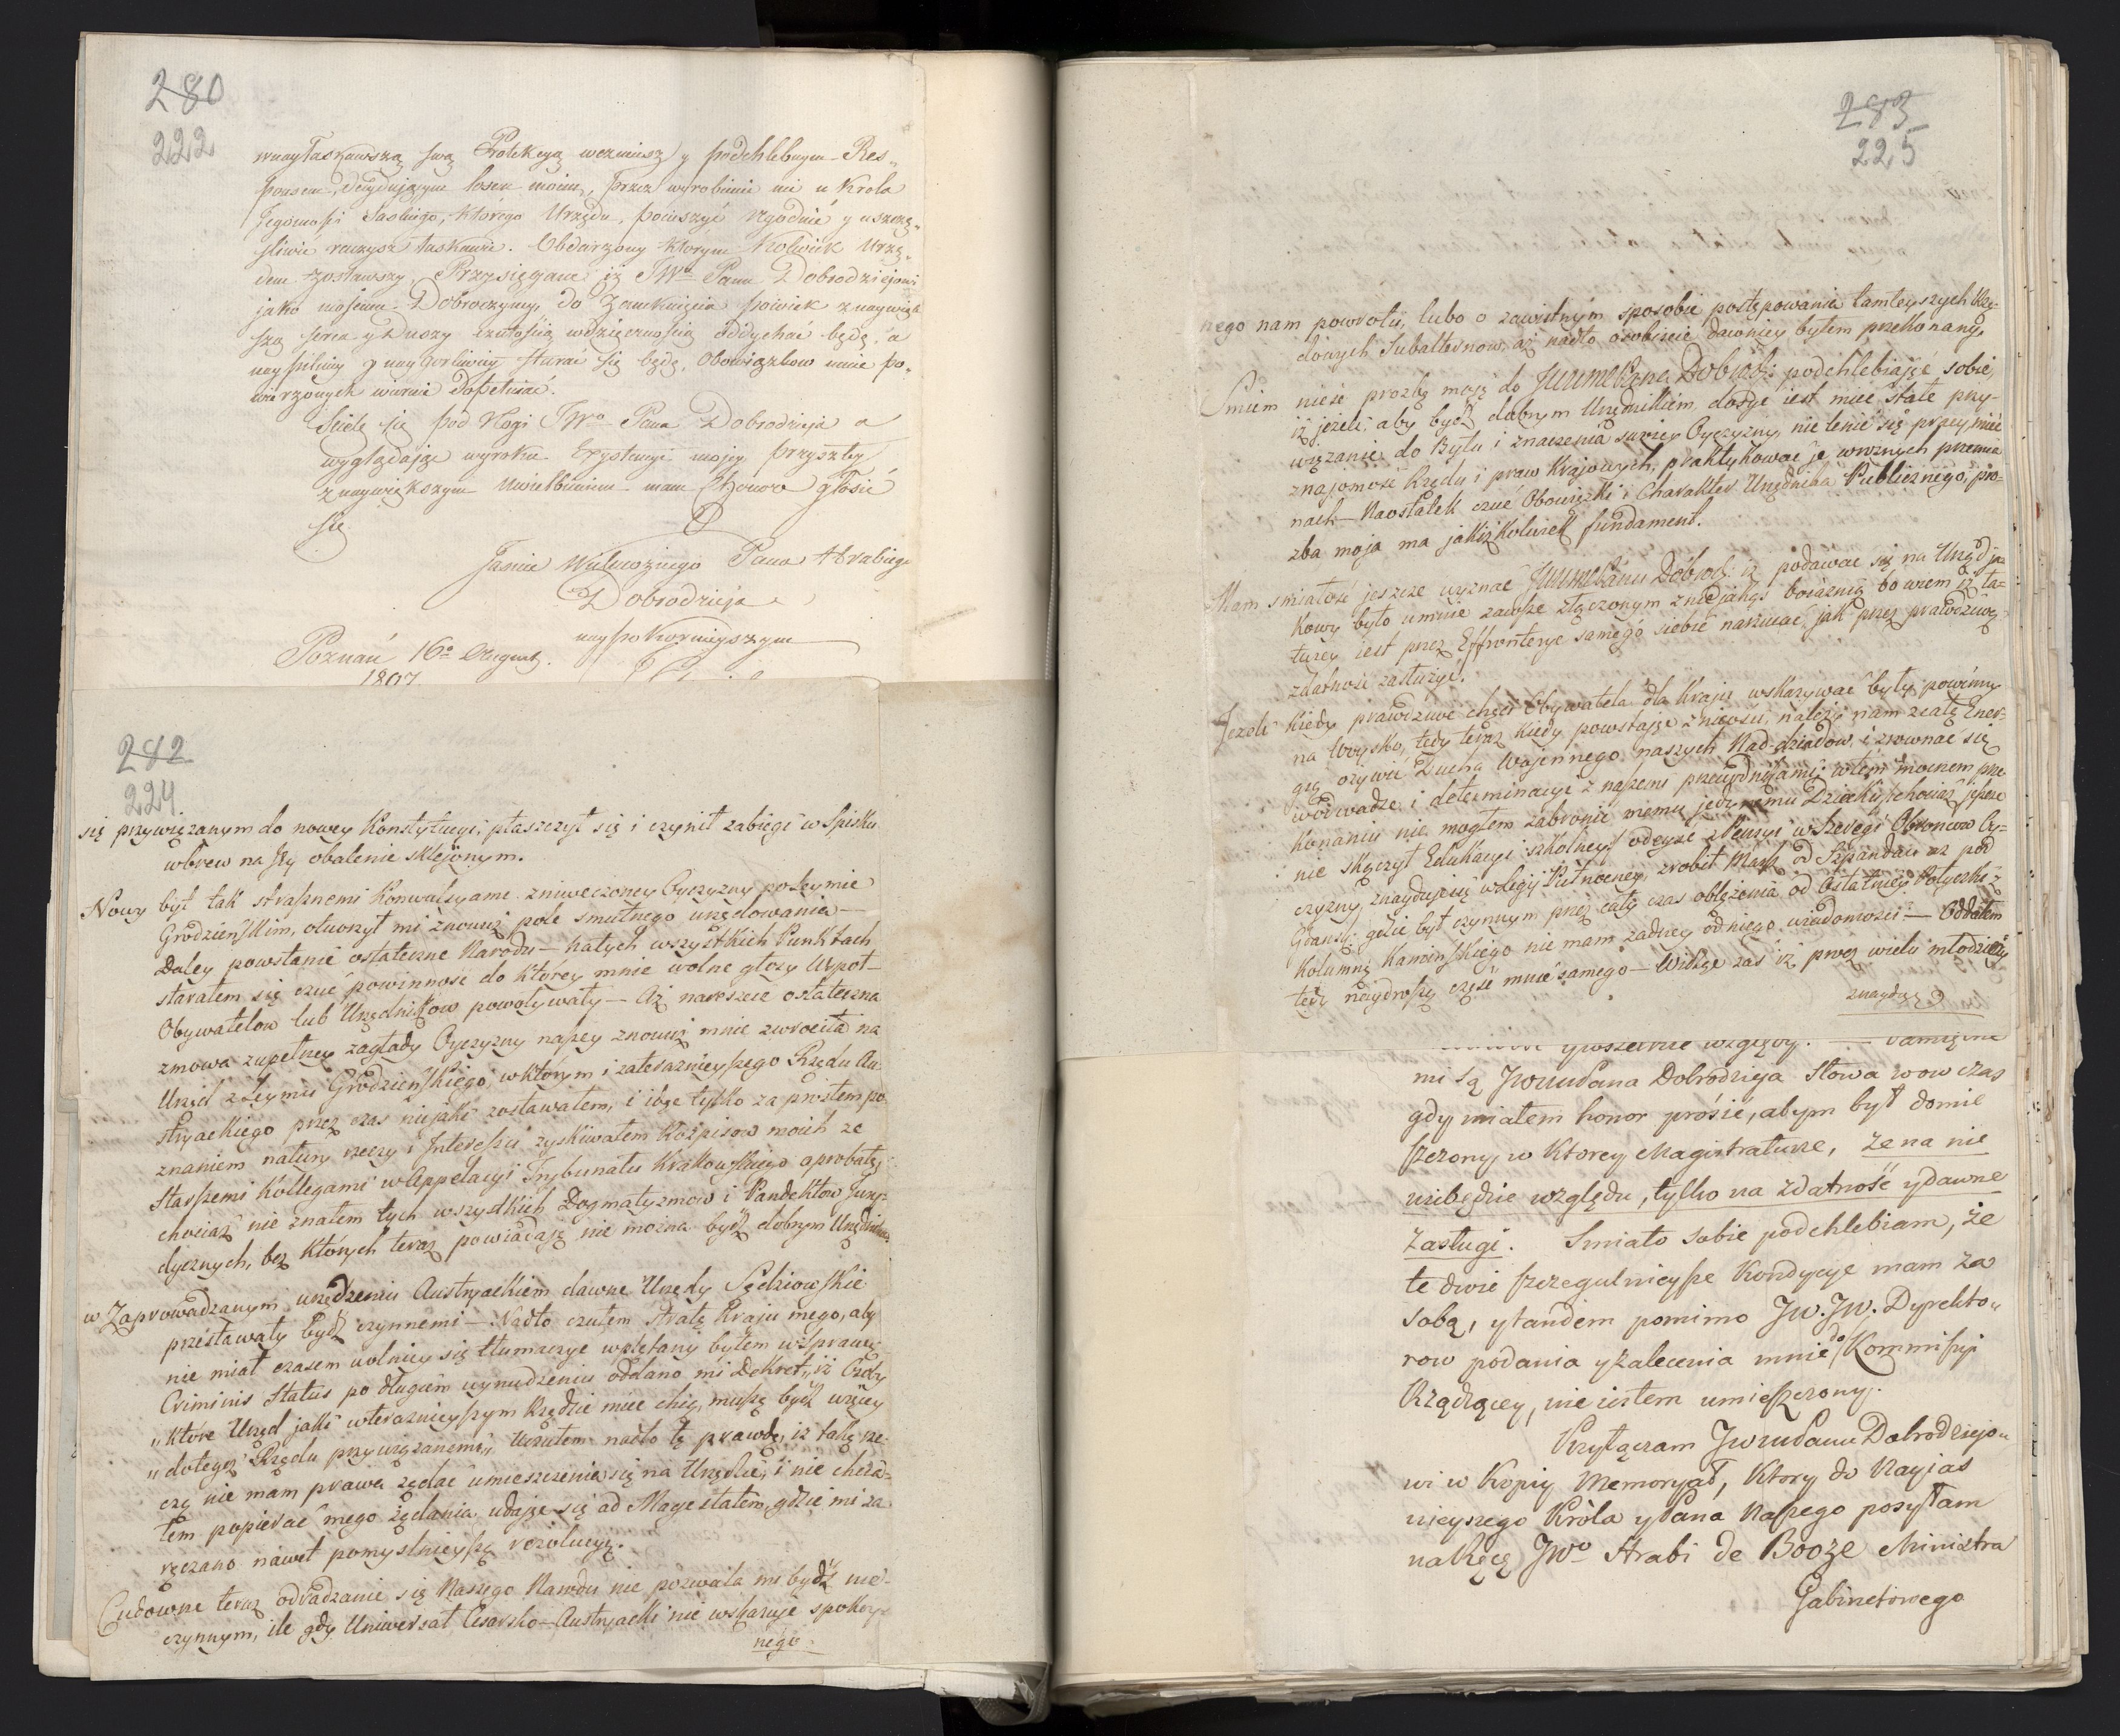 280
222
mnayłaskawszą swą Protekcyą weżmiesz y podchlebnym Res„
ponsem, decydującym losem moim, przez wyrobienie mi u Krola
Jegomości Saskiego, którego Urzędu, pocieszyć zgodnie y uszczę„
śliwie raczysz łaskawie. Obdarzony którym Kolwiek Urzę„
dem zostawszy, Przysięgam iż JWo Panu Dobrodziejowi
jako mojemu Dobroczyńcy, do zamknięcia powiek z naywięk
szą serca y Duszy czułością wdzięcznością oddychać będę, a
naypilniey y nayGorliwiey starać się będę, Obowiązkow mnie po„
wierzonych wiernie dopełniać.
Ściele się pod Nogi JWo Pana Dobrodzieja a
wyglądając wyroku Exystencyi mojey przyszłey
z naywiększym Uwielbieniem mam Honor głosić
się
Jaśnie Wielmożnego Pana Hrabiego
Dobrodzieja
naypokornieyszym
Poznań 16o August.
1807
282
224
się przywiązanym do nowey Konstytucyi, płaszczył się i czynił zabiegi w Spisku
wbrew na Jey obalenie sklejonym.
Nowy był tak strasznemi Konwulsyami zniweczoney Oyczyzny po Seymie
Grodzieńskim, otworzył mi znowuż pole smutnego urzędowania—
Daley powstanie ostateczne Narodu — na tych wszystkich Punktach
starałem się czuć powinność do którey mnie wolne głosy Wspoł—
Obywatelow lub Urzędnikow powoływały — Aż nareszcie ostateczna
zmowa zupełney zagłady Oyczyzny naszey znowuż mnie zwrociła na
Urząd z Seymu Grodzieńskiego, w którym i za teraznieyszego Rządu Au„
stryackiego przez czas niejaki zostawałem, i idąc tylko za prostem po„
znaniem natury rzeczy i Interessu zyskiwałem Rozpisow moich ze
Starszemi Kollegami w Appelacyi Trybunału Krakowskiego aprobatę,
chociaż nie znałem tych wszystkich Dogmatyzmow i Pandektow Jury„
dycznych, bez których teraz powiadają nie można bydź dobrym Urzędnikiem
w Zaprowadzanym urzędzeniu Austryackiem dawne Urzędy Sędziowskie
przestawały bydź czynnemi — Nadto czułem stratę Kraju mego, aby
nie miał czasem wolniey się tłumaczyć wplętany byłem w sprawę
Criminis Status po długiem wynudzeniu oddano mi Dekret „iż Osoby
„które Urząd jaki w teraznieyszym Rządzie mieć chcą, muszą bydź więcey
„do tegoż Rządu przywiązanemi„ Uczułem nadto tę prawdę, iż taką rze„
czą nie mam prawa żądać umieszczenia się na Urzędzie, i nie chcia„
łem popierać mego żądania udając się ad Majestatem, gdzie mi za„
ręczano nawet pomyślnieyszą rezolucyą.
Cudowne teraz odradzanie się Naszego Narodu nie pozwala mi bydź nie„
czynnym, ile gdy Uniwersał Cesarsko—Austryacki nie wskazuje spokoy„
nego
283
225
nego nam powrotu, lubo o zawistnym sposobie postępowania tamteyszych Rzą„
dowych Subalternow, aż nadto osobiście dawniey byłem przekonany,
Smiem nieść prozbę moją do JWWMCPana Dobrodz: podchlebiając sobie,
iż jeżeli: aby bydź dobrym Urzędnikiem dosyć iest mieć stałe przy„
wiązanie do Bytu i znaczenia swoiey Oyczyzny, nie lenić się pracy, mieć
znajomość Rządu i praw Krajowych, praktykować je w roznych przemia„
nach — Naostatek czuć Obowiązki i Charakter Urzędnika Publicznego, pro„
zba moja ma jakiżkolwiek fundament.
Mam smiałość jeszcze wyznać JWWMCPanu Dobrodz: iż podawać się na Urząd ja„
kowy było u mnie zawsze złączonym z niejakąś boiaznią bowiem iż ta„
turey iest przez Effronterye samego siebie narzucać, jak przez prawdziwą
zdatność zasłużyć.
Jezeli kiedy prawdziwe chęci Obywatela dla kraju wskazywać były powinny
na Woysko, tedy teraz kiedy powstając z nicości, należy nam z całą Ener„
gią ożywić Ducha Wojennego naszych Nad-dziadow i zrownać się
w odwadze i determinacyi z naszemi przeciwnikami w tem mocnem prze„
konaniu nie mogłem zabronić memu jedynemu Dziecku (chociaż jeszcze
nie skączył Edukacyi szkolney) odeyść z Pensyi w Szeregi Obroncow Oy„
czyzny, znaydując się w Legji Pułnocney, zrobił Marsz od Szpandau aż pod
Gdansk, gdzie był czynnym przez cały czas oblężenia, od Ostatniey Potyczki z
Kolumną Kaminskiego nie mam żadney od niego wiadomości — Oddałem
tedy naydroższą część mnie samego — Widząc zaś iż przez wielu młodzieży
znaydą
y poszednie względy. — Pamiętne
mi są JWmuPana Dobrodzieja słowa wow czas
gdy miałem honor prosić, abym był domie
szczony w Ktorey Magistraturze, że na nic
niebędzie względu, tylko na zdatność y dawne
Zasługi. Smiało sobie podchlebiam, że
te dwie szczegulnieysze Kondycye mam za
sobą, y tandem pomimo Jw.Jw. Dyrekto„
row podania y zalecenia mnie do Kommissyi
Rządzącey, nie iestem umieszczony.
Przyłączam JwmuPanu Dobrodziejo„
wi w kopiy Memoryał, Ktory do Nayias
nieyszego Króla y Pana Naszego posyłam
na Ręcę JWo Hrabi de Booze Ministra
Gabinetowego